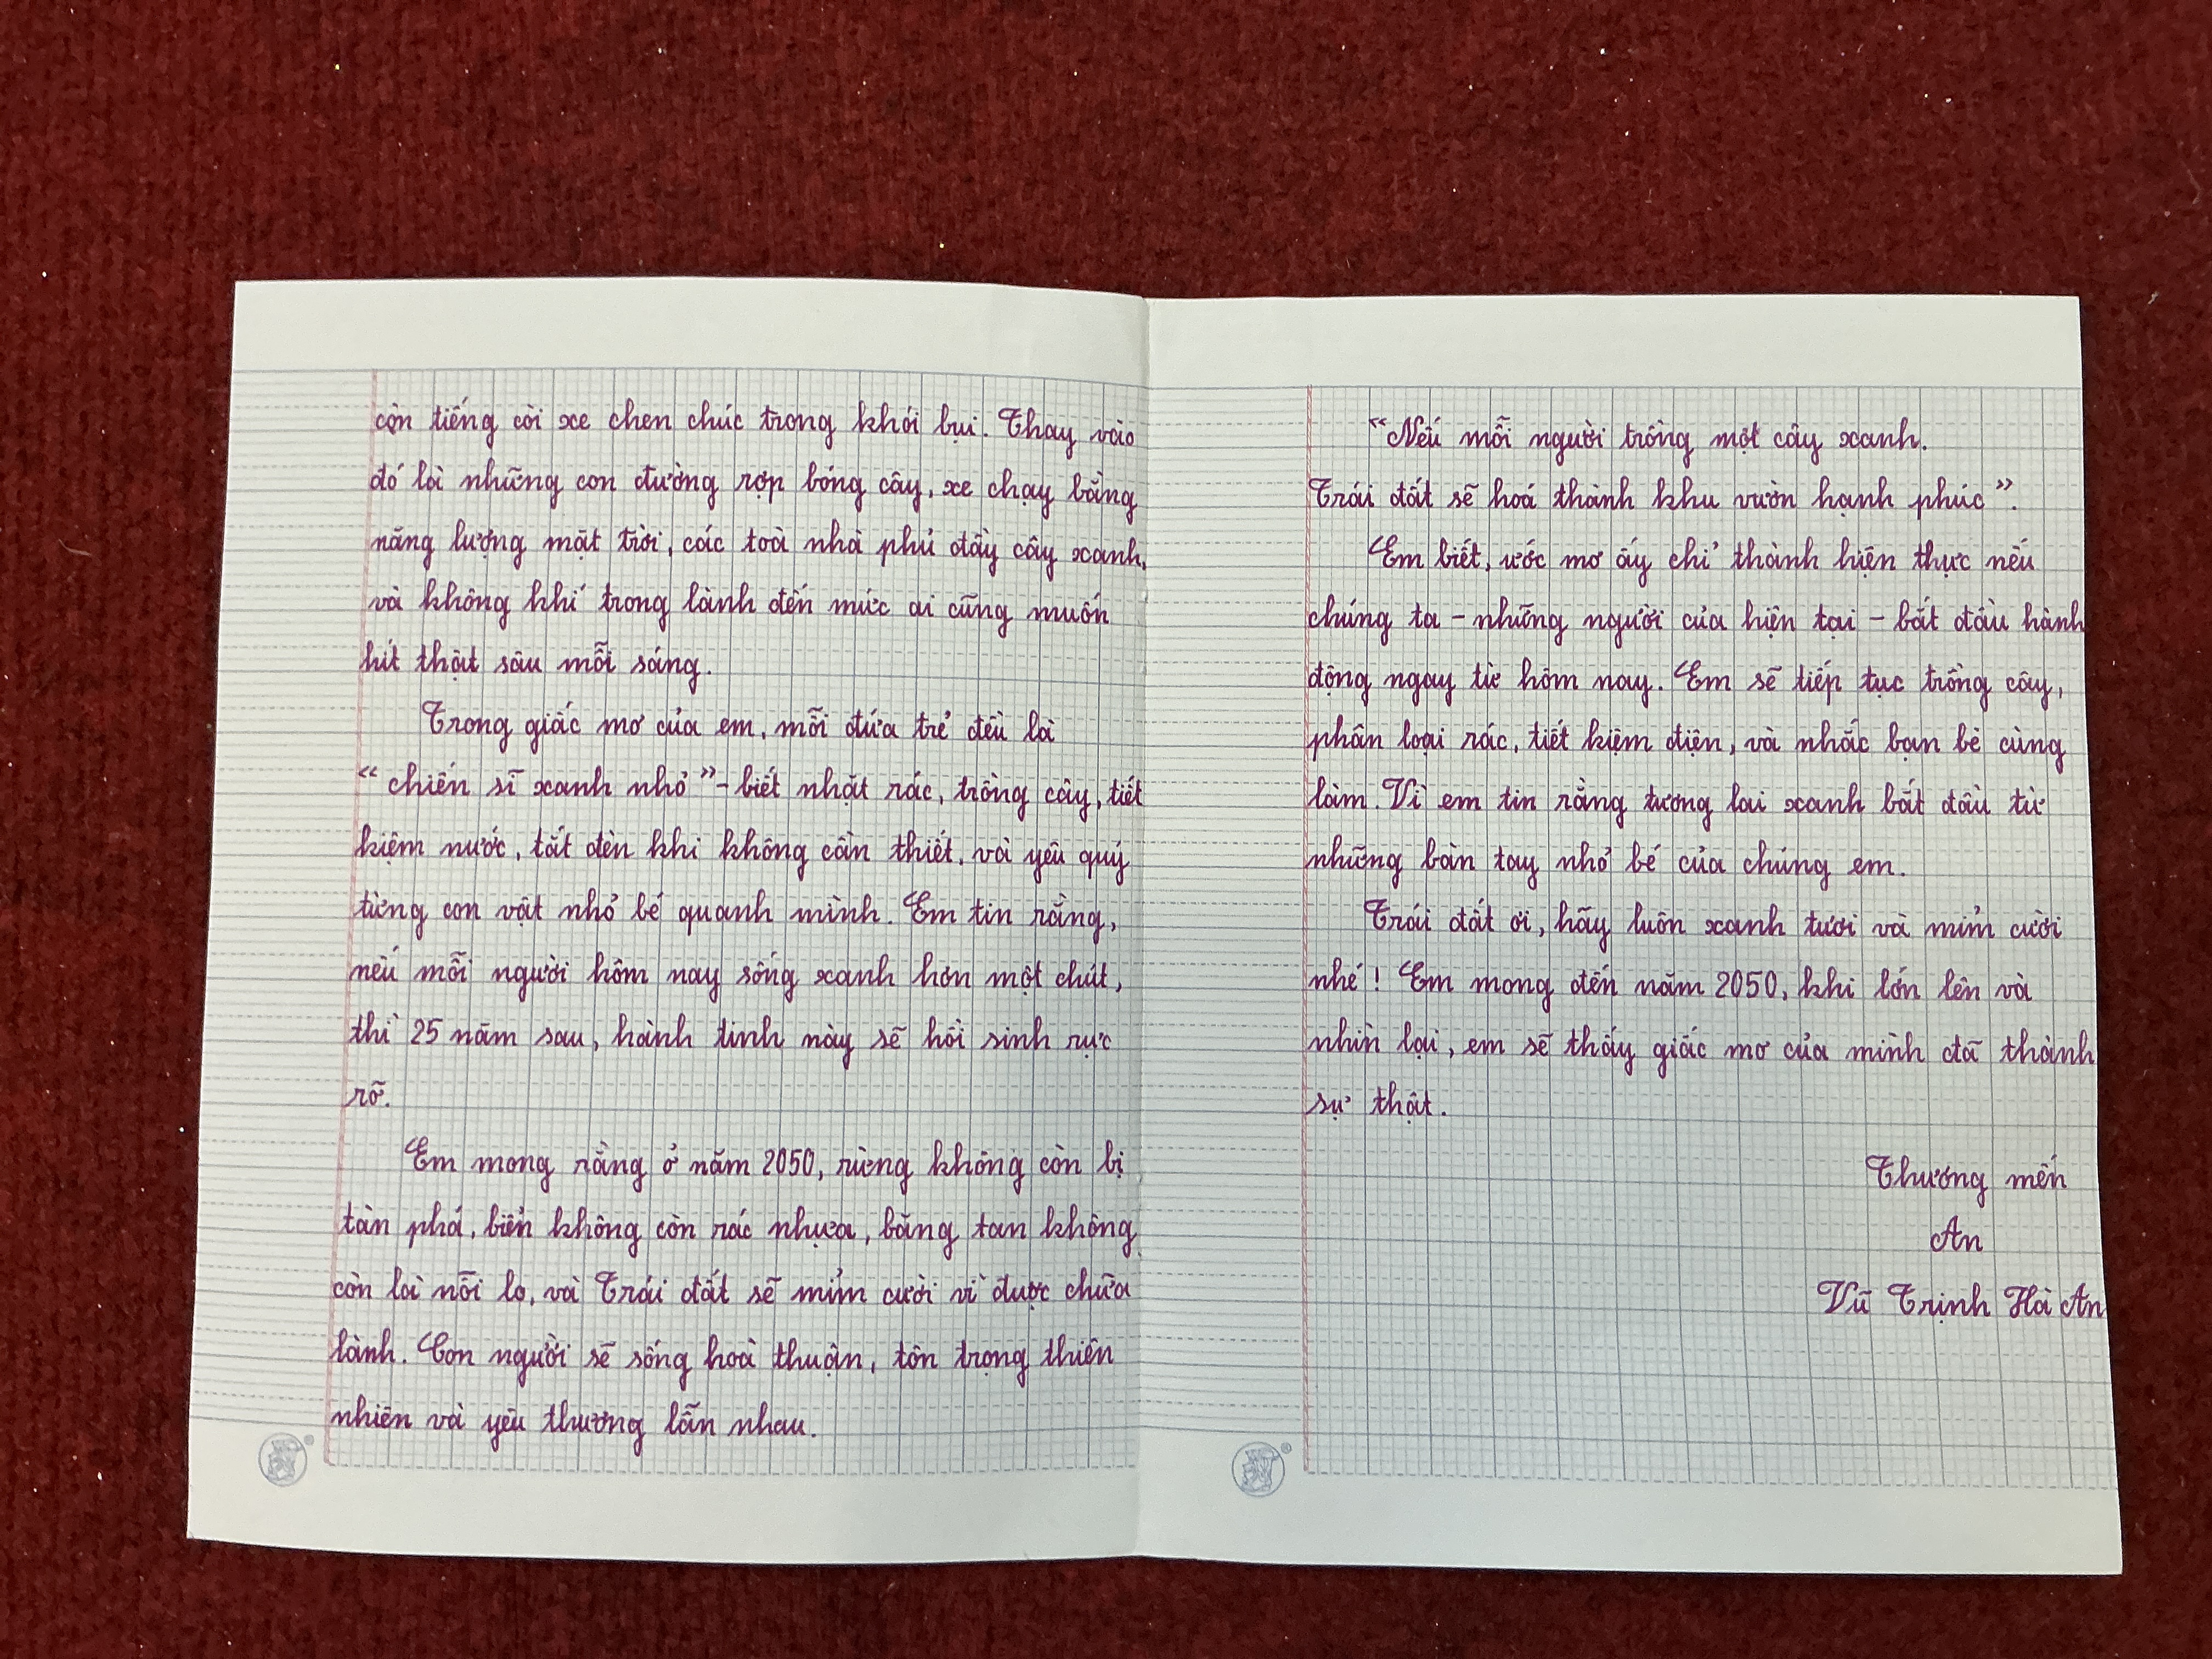 còn tiếng còi xe chen chúc trong khói bụi. Thay vào
đó là những con đường rợp bóng cây, xe chạy bằng
năng lượng mặt trời, các toà nhà phủ đầy cây xanh,
và không khí trong lành đến mức ai cũng muốn
hít thật sâu mỗi sáng.
Trong giấc mơ của em, mỗi đứa trẻ đều là
“chiến sĩ xanh nhỏ” - biết nhặt rác, trồng cây, tiết
kiệm nước, tắt đèn khi không cần thiết, và yêu quý
từng con vật nhỏ bé quanh mình. Em tin rằng,
nếu mỗi người hôm nay sống xanh hơn một chút,
thì 25 năm sau, hành tinh này sẽ hồi sinh rực
rỡ.
Em mong rằng ở năm 2050, rừng không còn bị
tàn phá, biển không còn rác nhựa, băng tan không
còn là nỗi lo, và Trái đất sẽ mỉm cười vì được chữa
lành. Con người sẽ sống hoà thuận, tôn trọng thiên
nhiên và yêu thương lẫn nhau.
“Nếu mỗi người trồng một cây xanh.
Trái đất sẽ hoá thành khu vườn hạnh phúc”.
Em biết, ước mơ ấy chỉ thành hiện thực nếu
chúng ta - những người của hiện tại - bắt đầu hành
động ngay từ hôm nay. Em sẽ tiếp tục trồng cây,
phân loại rác, tiết kiệm điện, và nhắc bạn bè cùng
làm. Vì em tin rằng tương lai xanh bắt đầu từ
những bàn tay nhỏ bé của chúng em.
Trái đất ơi, hãy luôn xanh tươi và mỉm cười
nhé! Em mong đến năm 2050, khi lớn lên và
nhìn lại, em sẽ thấy giấc mơ của mình đã thành
sự thật.
Thương mến
An
Vũ Trịnh Hà An